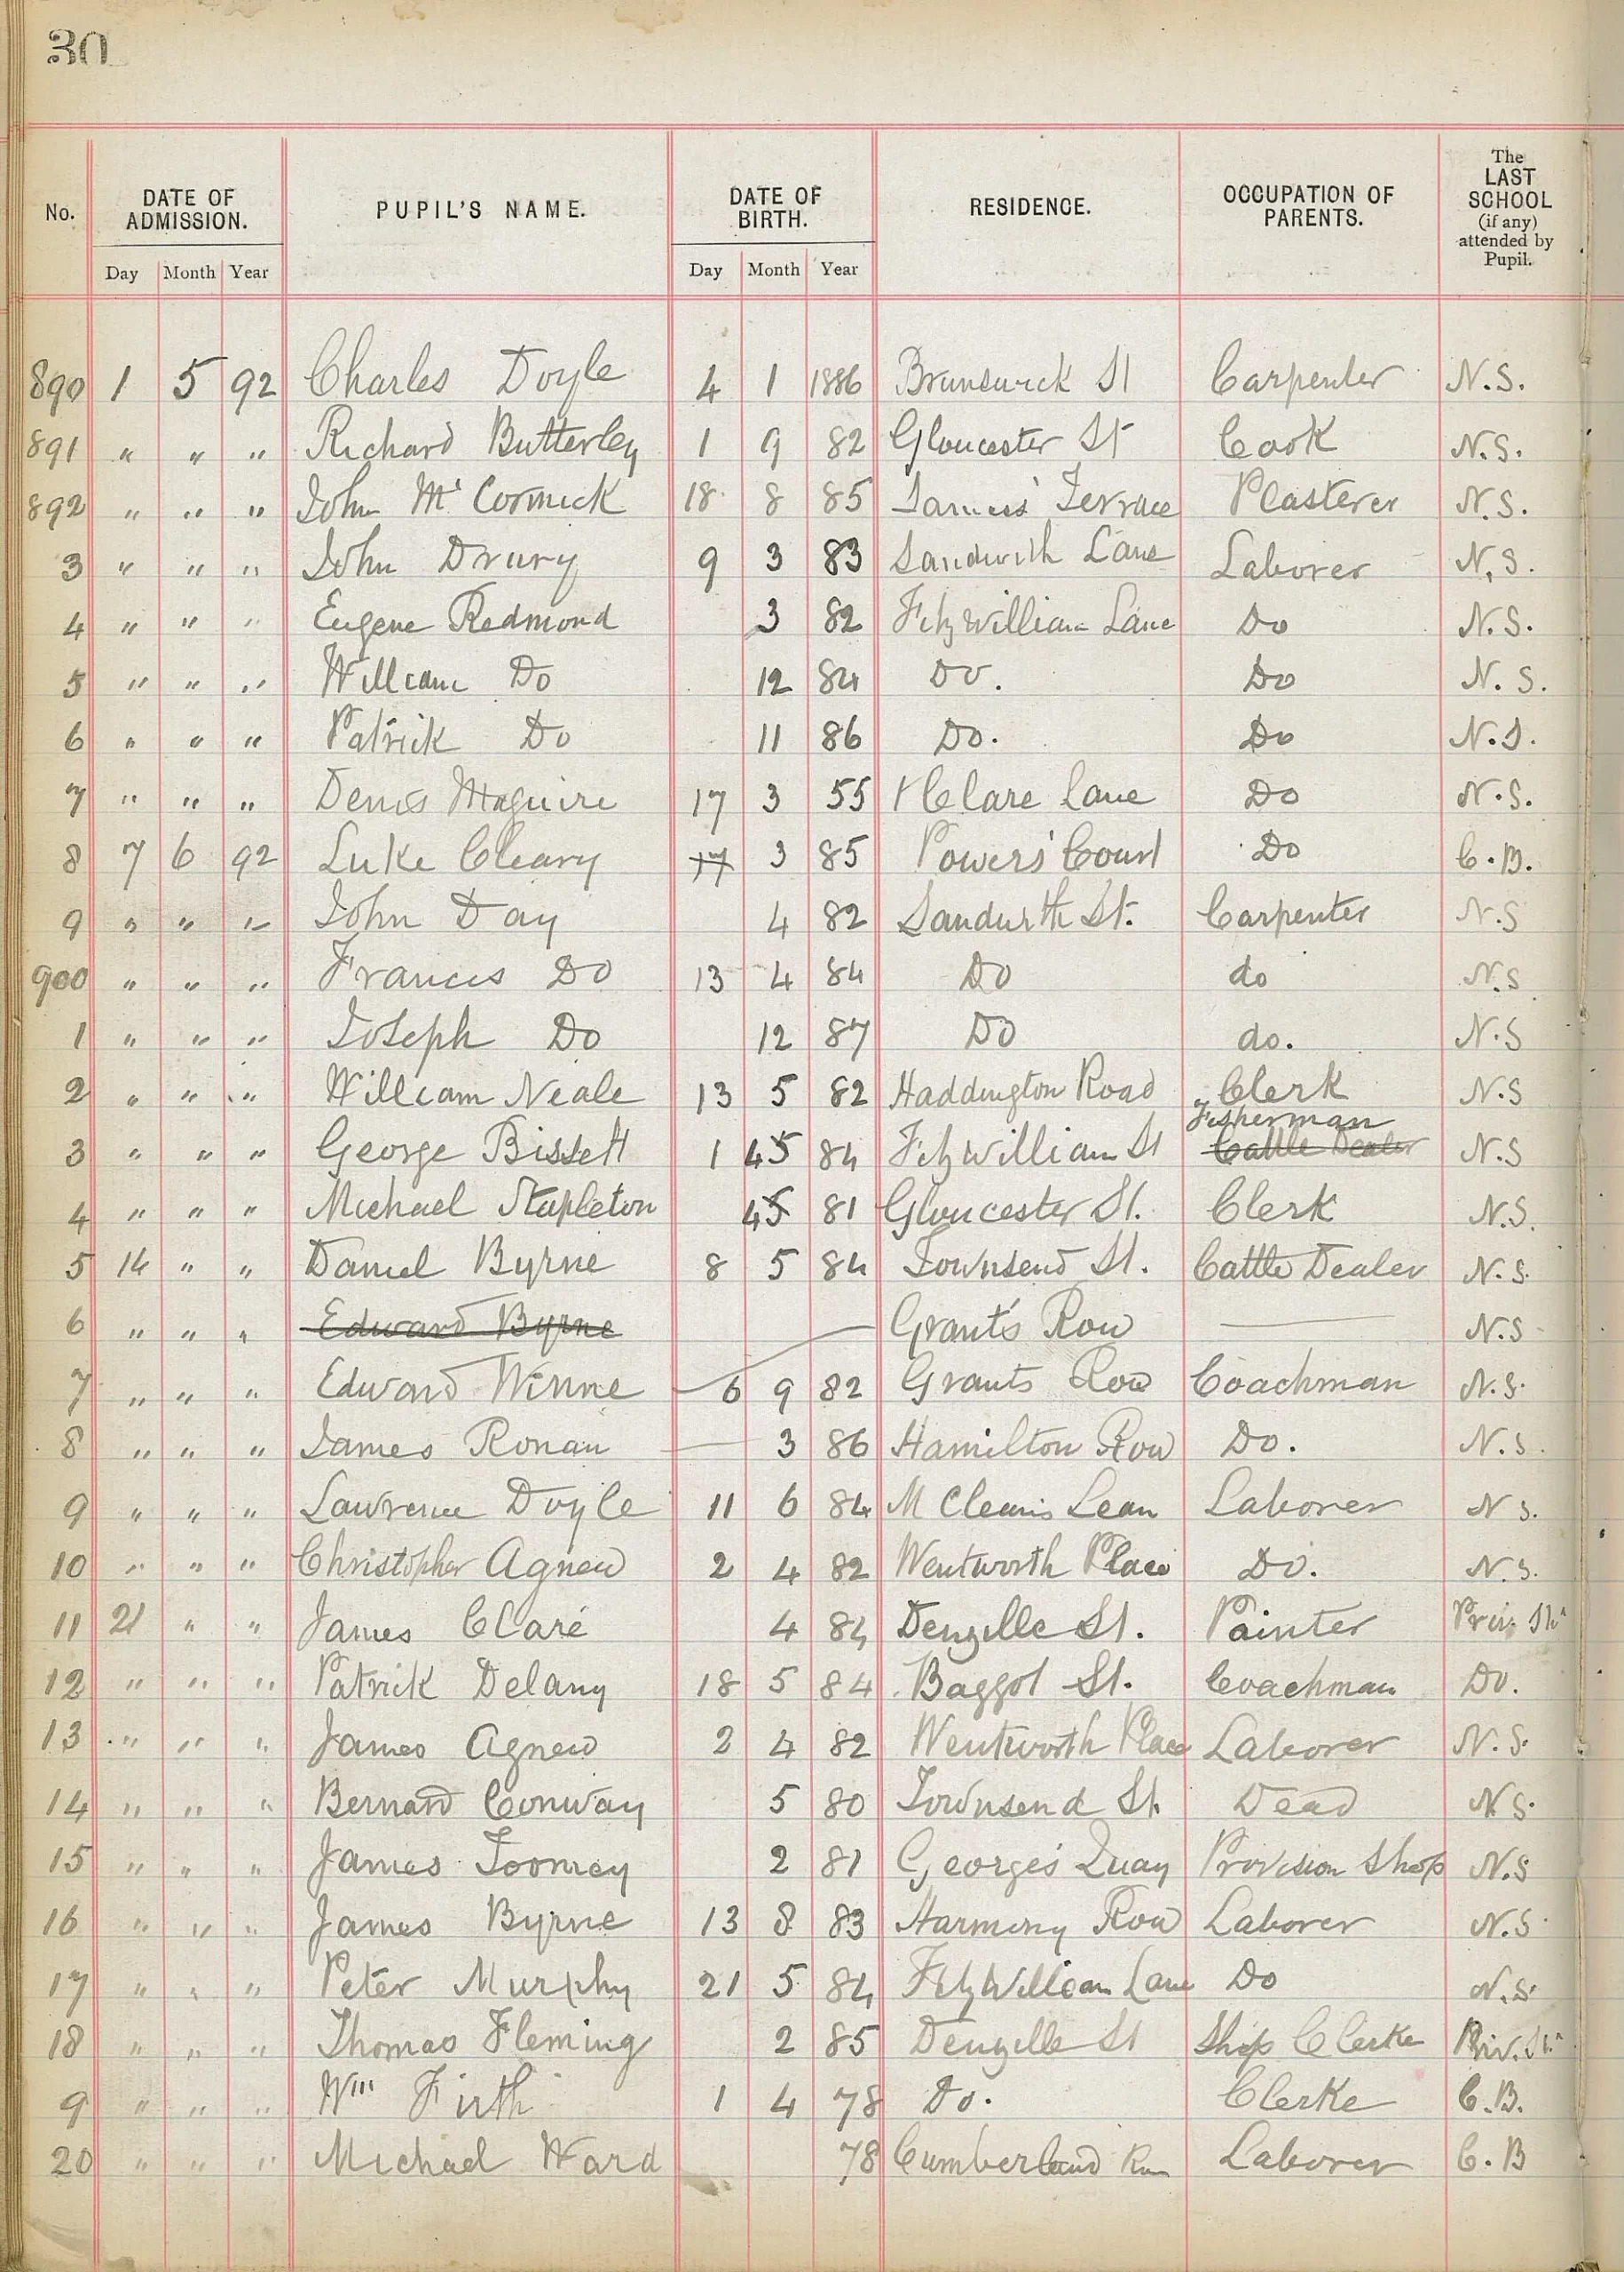 30
No. DATE OF ADMISSION. PUPIL'S NAME. DATE OF BIRTH. RESIDENCE. OCCUPATION OF PARENTS. The LAST SCHOOL (if any) attended by Pupil.
Day Month Year Day Month Year
890 1 5 92 Charles Doyle 4 1 1886 Brunswick St Carpenter N.S.
891 " " " Richard Butterley 1 9 82 Gloucester St Cook N.S.
892 " " " John Mc Cormick 18 8 85 Terrace Plasterer N.S.
3 " " " John Drury 9 3 83 Sandwith Lane Laborer N.S.
4 " " " Eugene Redmond 3 82 Fitzwilliam Lane Do N.S.
5 " " " William Do 12 84 Do. Do N.S.
6 " " " Patrick Do 11 86 Do. Do N.S.
7 " " " Denis Maguire 17 3 55 Clare Lane Do N.S.
8 7 6 92 Luke Cleary 17 3 85 Powers' Court Do C.B.
9 " " " John Day 4 82 Sandwith St. Carpenter N.S
900 " " " Francis Do 13 4 84 Do do N.S
1 " " " Joseph Do 12 87 Do do. N.S
2 " " " William Neale 13 5 82 Haddington Road Clerk N.S
Fisherman
3 " " " George Bissett 1 4 5 84 Fitzwilliam St Cattle Dealer N.S
4 " " " Michael Stapleton 4 5 81 Gloucester St. Clerk N.S.
5 14 " " Daniel Byrne 8 5 84 Townsend St. Cattle Dealer N.S.
6 " " " Edward Byrne — Grant's Row — N.S
7 " " " Edward Winne 6 9 82 Grants Row Coachman N.S.
8 " " " James Ronan — 3 86 Hamilton Row Do. N.S.
9 " " " Lawrence Doyle 11 6 84 Laborer N S.
10 " " " Christopher Agnew 2 4 82 Wentworth Place Do. N.S.
11 21 " " James Clare 4 84 Denzille St. Painter Priv. Sh
12 " " " Patrick Delany 18 5 84 Baggot St. Coachman Do.
13 " " " James Agnew 2 4 82 Wentworth Place Laborer N.S.
14 " " " Bernard Conway 5 80 Townsend St. Dead N.S.
15 " " " James Toomey 2 81 George's Quay Provision Shop N.S
16 " " " James Byrne 13 8 83 Harmony Row Laborer N.S.
17 " " " Peter Murphy 21 5 84 Fitzwilliam Lane Do N.S.
18 " " " Thomas Fleming 2 85 Denzille St Shop Clerke Priv. Sh
9 " " " Wm Firth 1 4 78 Do. Clerke C.B.
20 " " " Michael Ward 78 Cumberland Laborer C.B